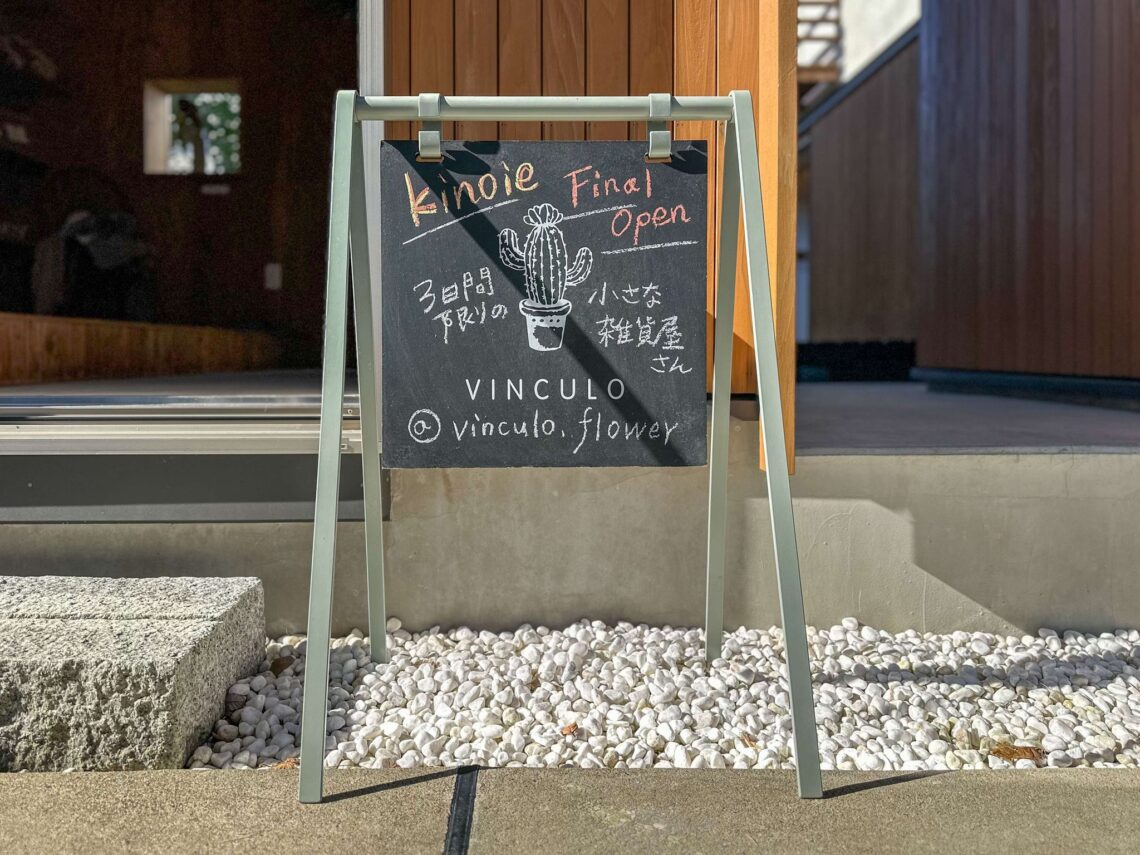 kinoie
Final
Open
3日間
限りの
小さな
雑貨屋
さん
VINCULO
@vinculo.flower